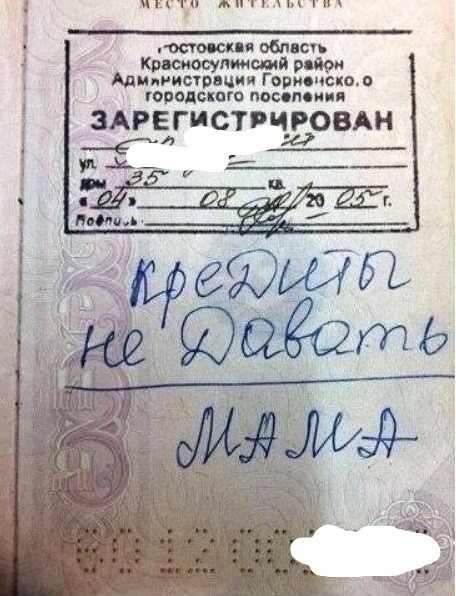 МЕСТО ЖИТЕЛЬСТВА
Ростовская область
Красносулинский район
Администрация Горненского
городского поселения
ЗАРЕГИСТРИРОВАН
ул.
дом 35 кв.
«04» 08 2005 г.
Подпись
кредиты
не давать
МАМА
80 12 00